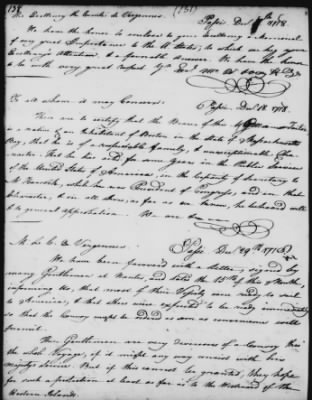 (151)
His Excellency the Comte de Vergennes. Passi Decr 1778.
We have the honor to enclose to your Excellency a Memorial
of very great Importance to the U States, to which we beg your
Excellency's Attention, & a favorable Answer. We have the honor
to be with very great respect
To all whom it may Concern. Passi Decr 18. 1778.
These are to certify that the Bearer of this
a native & an Inhabitant of Boston in the State of Massachusetts
Bay, that he is of a respectable family, & unexceptionable Cha-
racter. That he has acted for some years in the Public Service
of the United States of America, in the Capacity of Secretary to
Mr Hancock, while he was President of Congress, and in that
Character, & in all others, as far as we know, he behaved with
to general approbation. We are &c
M. Le C. de Vergennes. Passi Decr 29th 1778
We have been favoured with a Letter, signed by
many Gentlemen at Nantes, and dated the 15th of this Month,
informing Us, that most of their Vessels are ready to sail
to America, & that others were expected to be ready immediately
so that the Convoy might be ordered as soon as convenience will
permit.
These Gentlemen are very desirous of a Convoy thro'
the whole Voyage, if it might any way consist with his
Majestys Service. But if this cannot be granted, they hope
for such a protection at least as far as to the Westward of the
Western Islands.